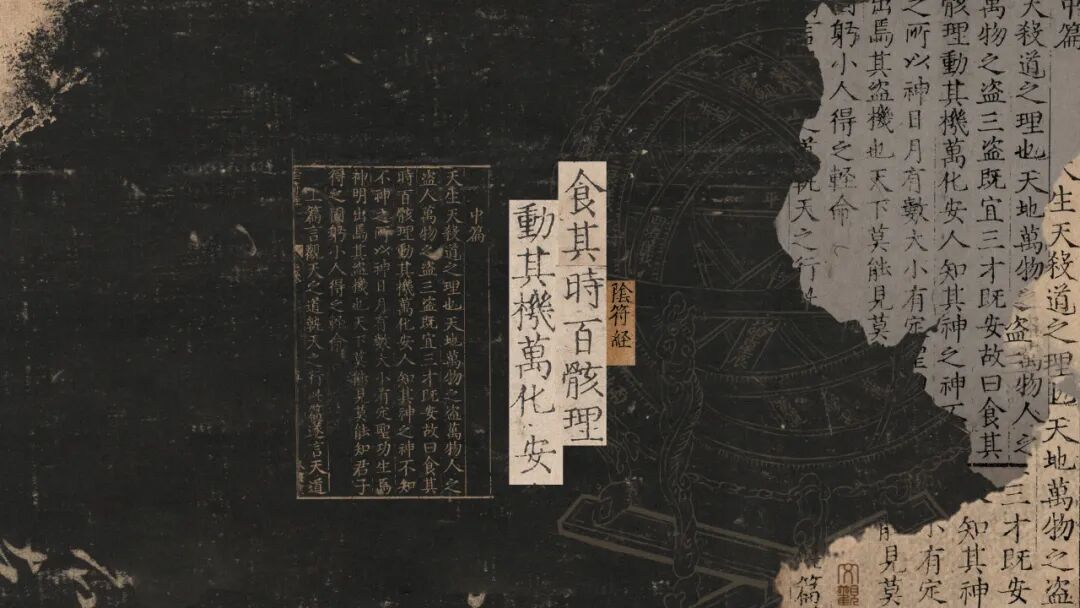 中篇
天殺道之理也天地萬物
萬物之盜三盜既宜三才既安故曰食其
骸理動其機萬化安人知其神之神
之所以神日月有數大小有定聖
出焉其盜機也天下莫能見莫
躬小人得之輕命
執天之行
生天殺道之理也天地萬物之盜
萬物人之
三才既安
知其神
小有定
能見莫
篇
陰符経
食其時百骸理
動其機萬化安
中篇
天生天殺道之理也天地萬物之盜萬物人之
盜人萬物之盜三盜既宜三才既安故曰食其
時百骸理動其機萬化安人知其神之神不知
不神之所以神日月有數大小有定聖功生焉
神明出焉其盜機也天下莫能見莫能知君子
得之固躬小人得之輕命
上篇言觀天之道執天之行此篇遂言天道